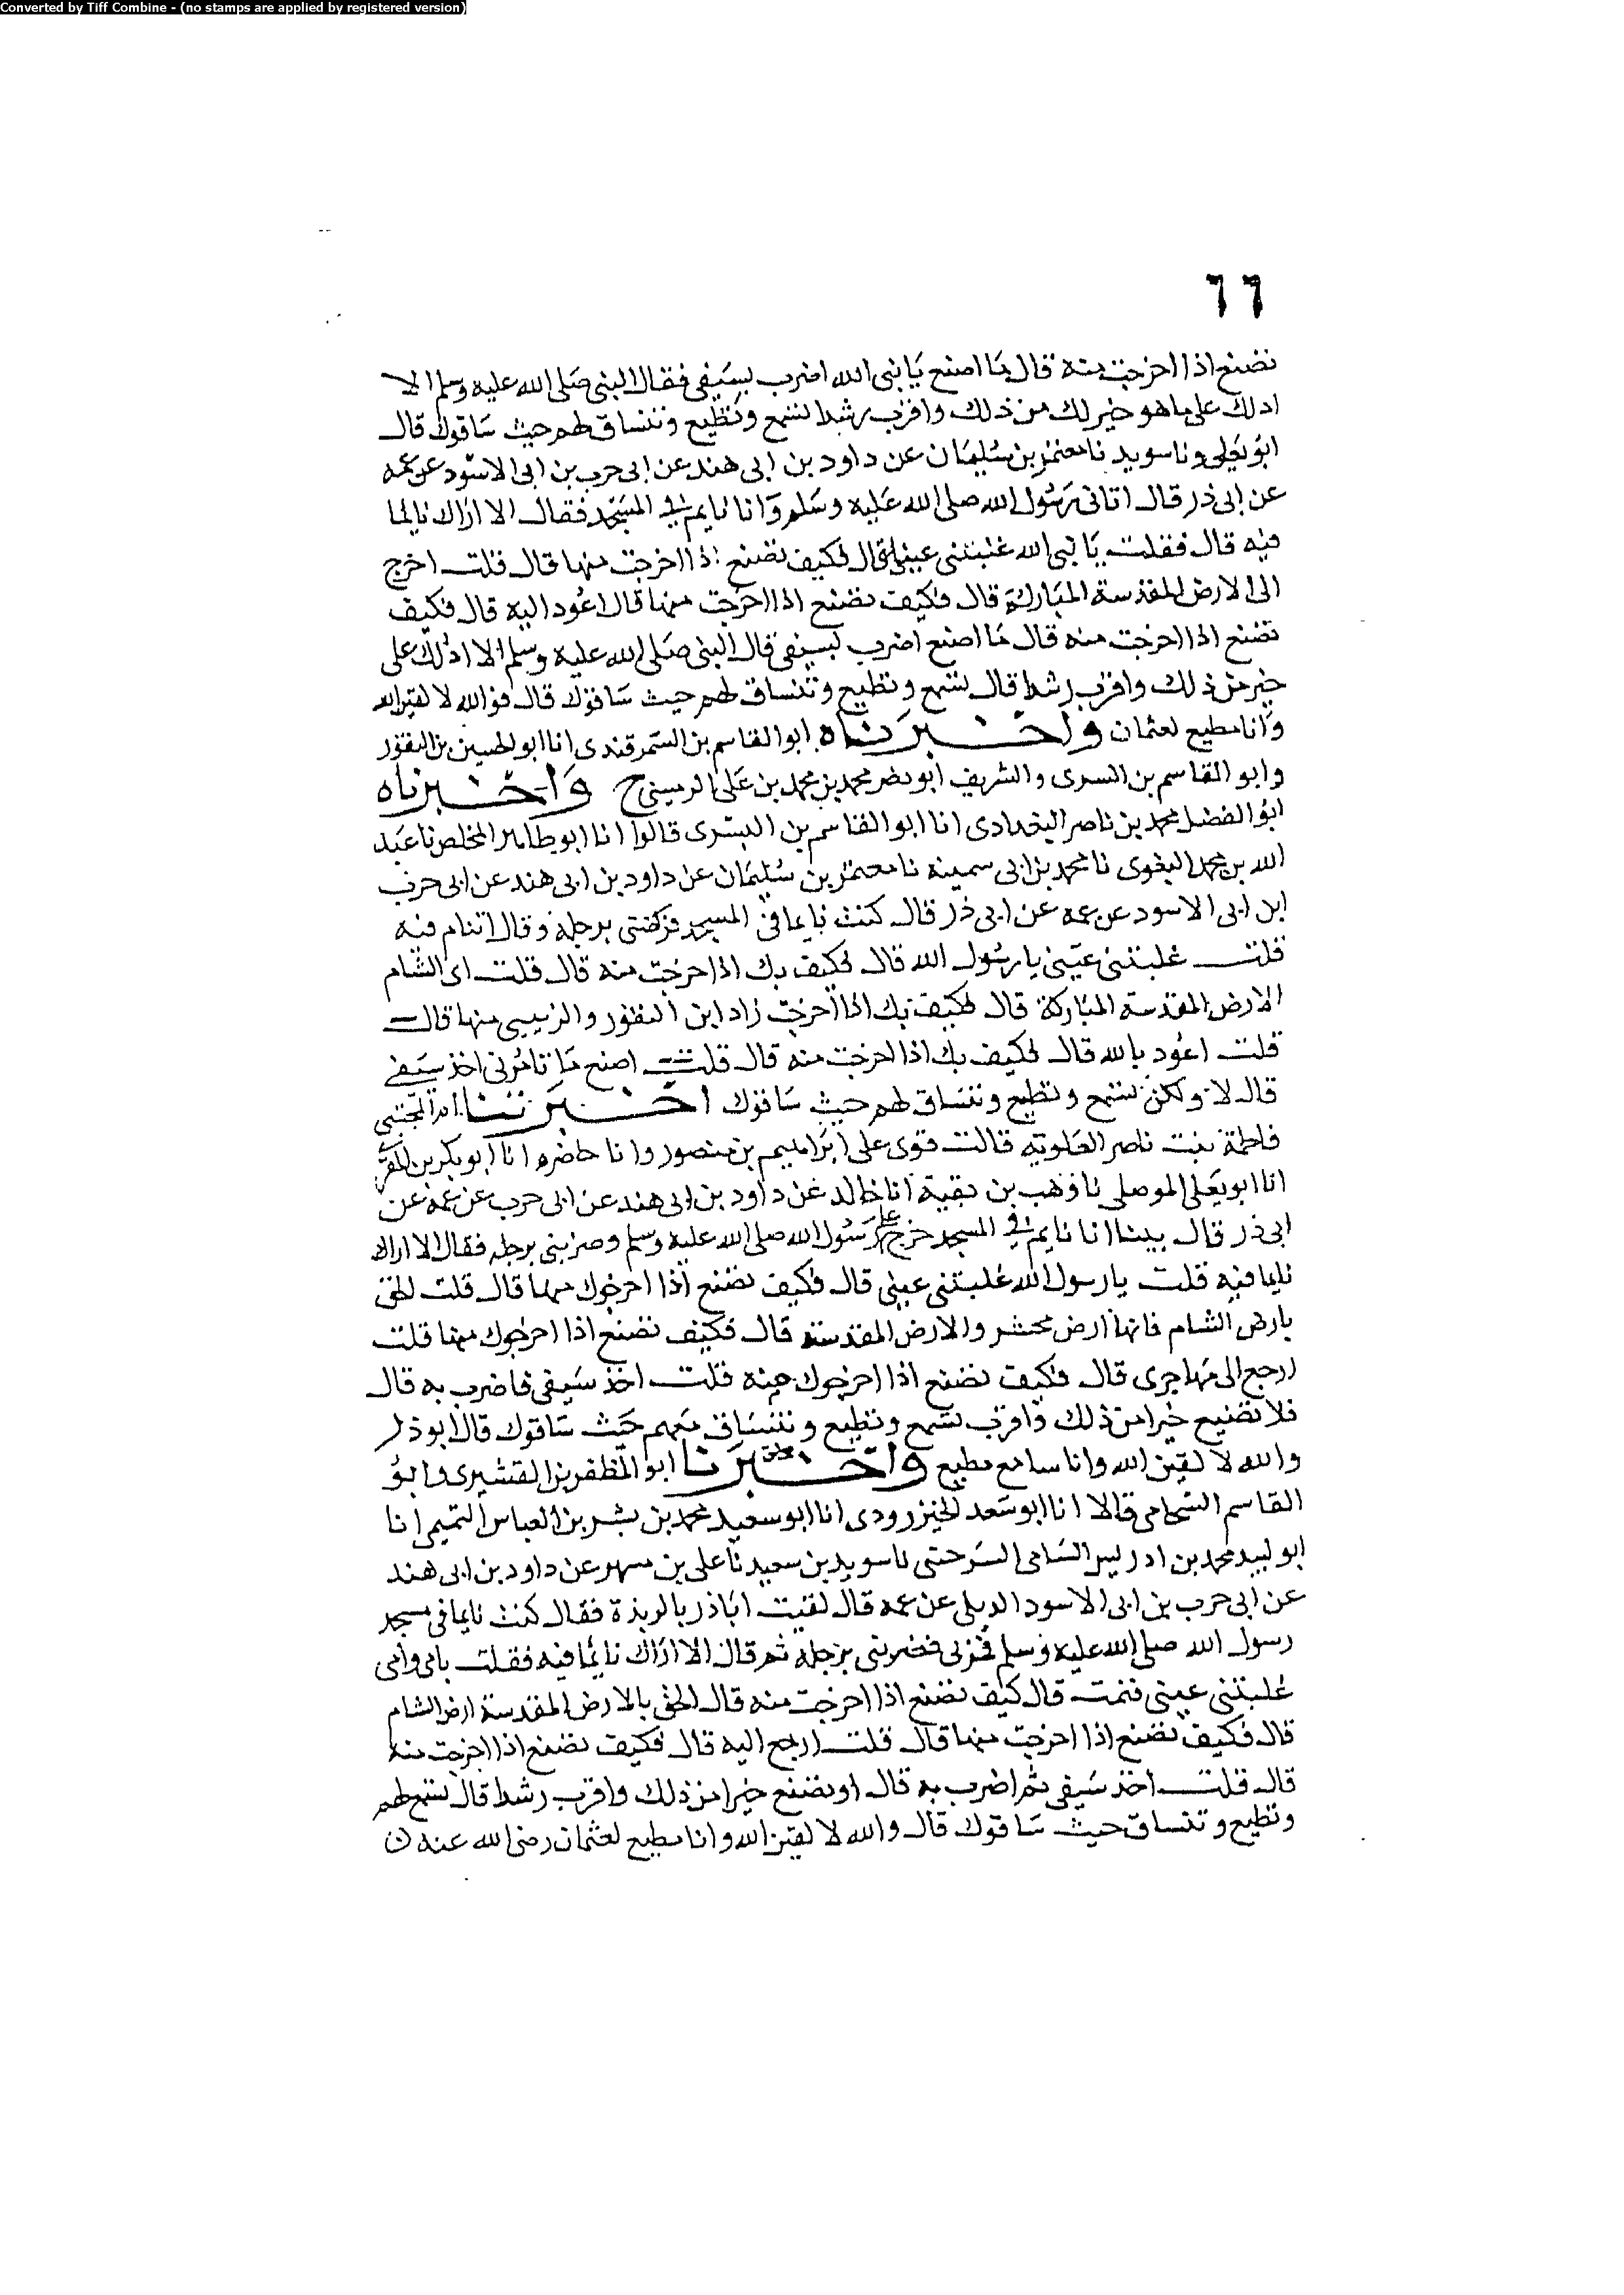 Converted by Tiff Combine - (no stamps are applied by registered version)
٦٦
تصنع اذا اخرجت منه قال ما اصنع يا نبى الله اضرب بسيفى فقال النبى صلى الله عليه وسلم الا
ادلك على ما هو خير لك من ذلك واقرب رشدا تسمع وتطيع وتنساق لهم حيث ساقوك قال
ابو يعلى ونا سويد نا معتمر بن سليمان عن داود بن ابى هند عن ابى حرب بن ابى الاسود عن عمه
عن ابى ذر قال اتانى رسول الله صلى الله عليه وسلم وانا نايم فى المسجد فقال الا اراك نايما
فيه قال فقلت يا نبى الله غلبتنى عينى قال فكيف تصنع اذا اخرجت منها قال قلت اخرج
الى الارض المقدسة المباركة قال فكيف تصنع اذا اخرجت منها قال اعود اليه قال فكيف
تصنع اذا اخرجت منه قال ما اصنع اضرب بسيفى قال النبى صلى الله عليه وسلم الا ادلك على
خير من ذلك واقرب رشدا قال تسمع وتطيع وتنساق لهم حيث ساقوك قال فوالله لالقين الله
وانا مطيع لعثمان واخبرناه ابو القاسم بن السمرقندى انا ابو الحسين بن النقور
وابو القاسم بن البسرى والشريف ابو نصر محمد بن محمد بن على الزينبى ح واخبرناه
ابو الفضل محمد بن ناصر البغدادى انا ابو القاسم بن البسرى قالوا انا ابو طاهر المخلص نا عبد
الله بن محمد البغوى نا محمد بن ابى سمينة نا معتمر بن سليمان عن داود بن ابى هند عن ابى حرب
ابن ابى الاسود عن عمه عن ابى ذر قال كنت نايما فى المسجد فركضنى برجله وقال اتنام فيه
قلت غلبتنى عينى يا رسول الله قال فكيف بك اذا اخرجت منه قال قلت اى الشام
الارض المقدسة المباركة قال فكيف بك اذا اخرجت زاد ابن النقور والزينبى منها قال
قلت اعود بالله قال فكيف بك اذا اخرجت منه قال قلت اصنع ما تامرنى اخذ سيفى
قال لا ولكن تسمع وتطيع وتنساق لهم حيث ساقوك اخبرتنا ام المجتبى
فاطمة بنت ناصر العلويه قالت قرى على ابراهيم بن منصور وانا حاضره انا ابو بكر بن المقرى
انا ابو يعلى الموصلى نا وهب بن بقية انا خالد عن داود بن ابى هند عن ابى حرب عن عمه عن
ابى ذر قال بينا انا نايم فى المسجد خرج على رسول الله صلى الله عليه وسلم وضربنى برجله فقال الا اراك
نايما فيه قلت يا رسول الله غلبتنى عينى قال فكيف تصنع اذا اخرجوك منها قال قلت الحق
بارض الشام فانها ارض محشر والارض المقدسة قال فكيف تصنع اذا اخرجوك منها قلت
ارجع الى مهاجرى قال فكيف تصنع اذا اخرجوك منه قلت اخذ سيفى فاضرب به قال
فلا تصنع خيرا من ذلك واقرب تسمع وتطيع وتنساق معهم حيث ساقوك قال ابو ذر
والله لالقين الله وانا سامع مطيع واخبرنا ابو المظفر بن القشيرى وابو
القاسم الشحامى قالا انا ابو سعد الجنزرودى انا ابو سعيد محمد بن بشر بن العباس التميمى انا
ابو لبيد محمد بن ادريس السامى السرخسى نا سويد بن سعيد نا على بن مسهر عن داود بن ابى هند
عن ابى حرب بن ابى الاسود الديلى عن عمه قال لقيت اباذر بالربذة فقال كنت نايما فى مسجد
رسول الله صلى الله عليه وسلم فمر بى فضربنى برجله ثم قال الا اراك نايما فيه فقلت بابى وامى
غلبتنى عينى فنمت قال كيف تصنع اذا اخرجت منه قال الحق بالارض المقدسة ارض الشام
قال فكيف تصنع اذا اخرجت منها قال قلت ارجع اليه قال فكيف تصنع اذا اخرجت منه
قال قلت اخذ سيفى ثم اضرب به قال او تصنع خيرا من ذلك واقرب رشدا قال تسمع لهم
وتطيع وتنساق حيث ساقوك قال والله لالقين الله وانا مطيع لعثمان رضى الله عنه ن